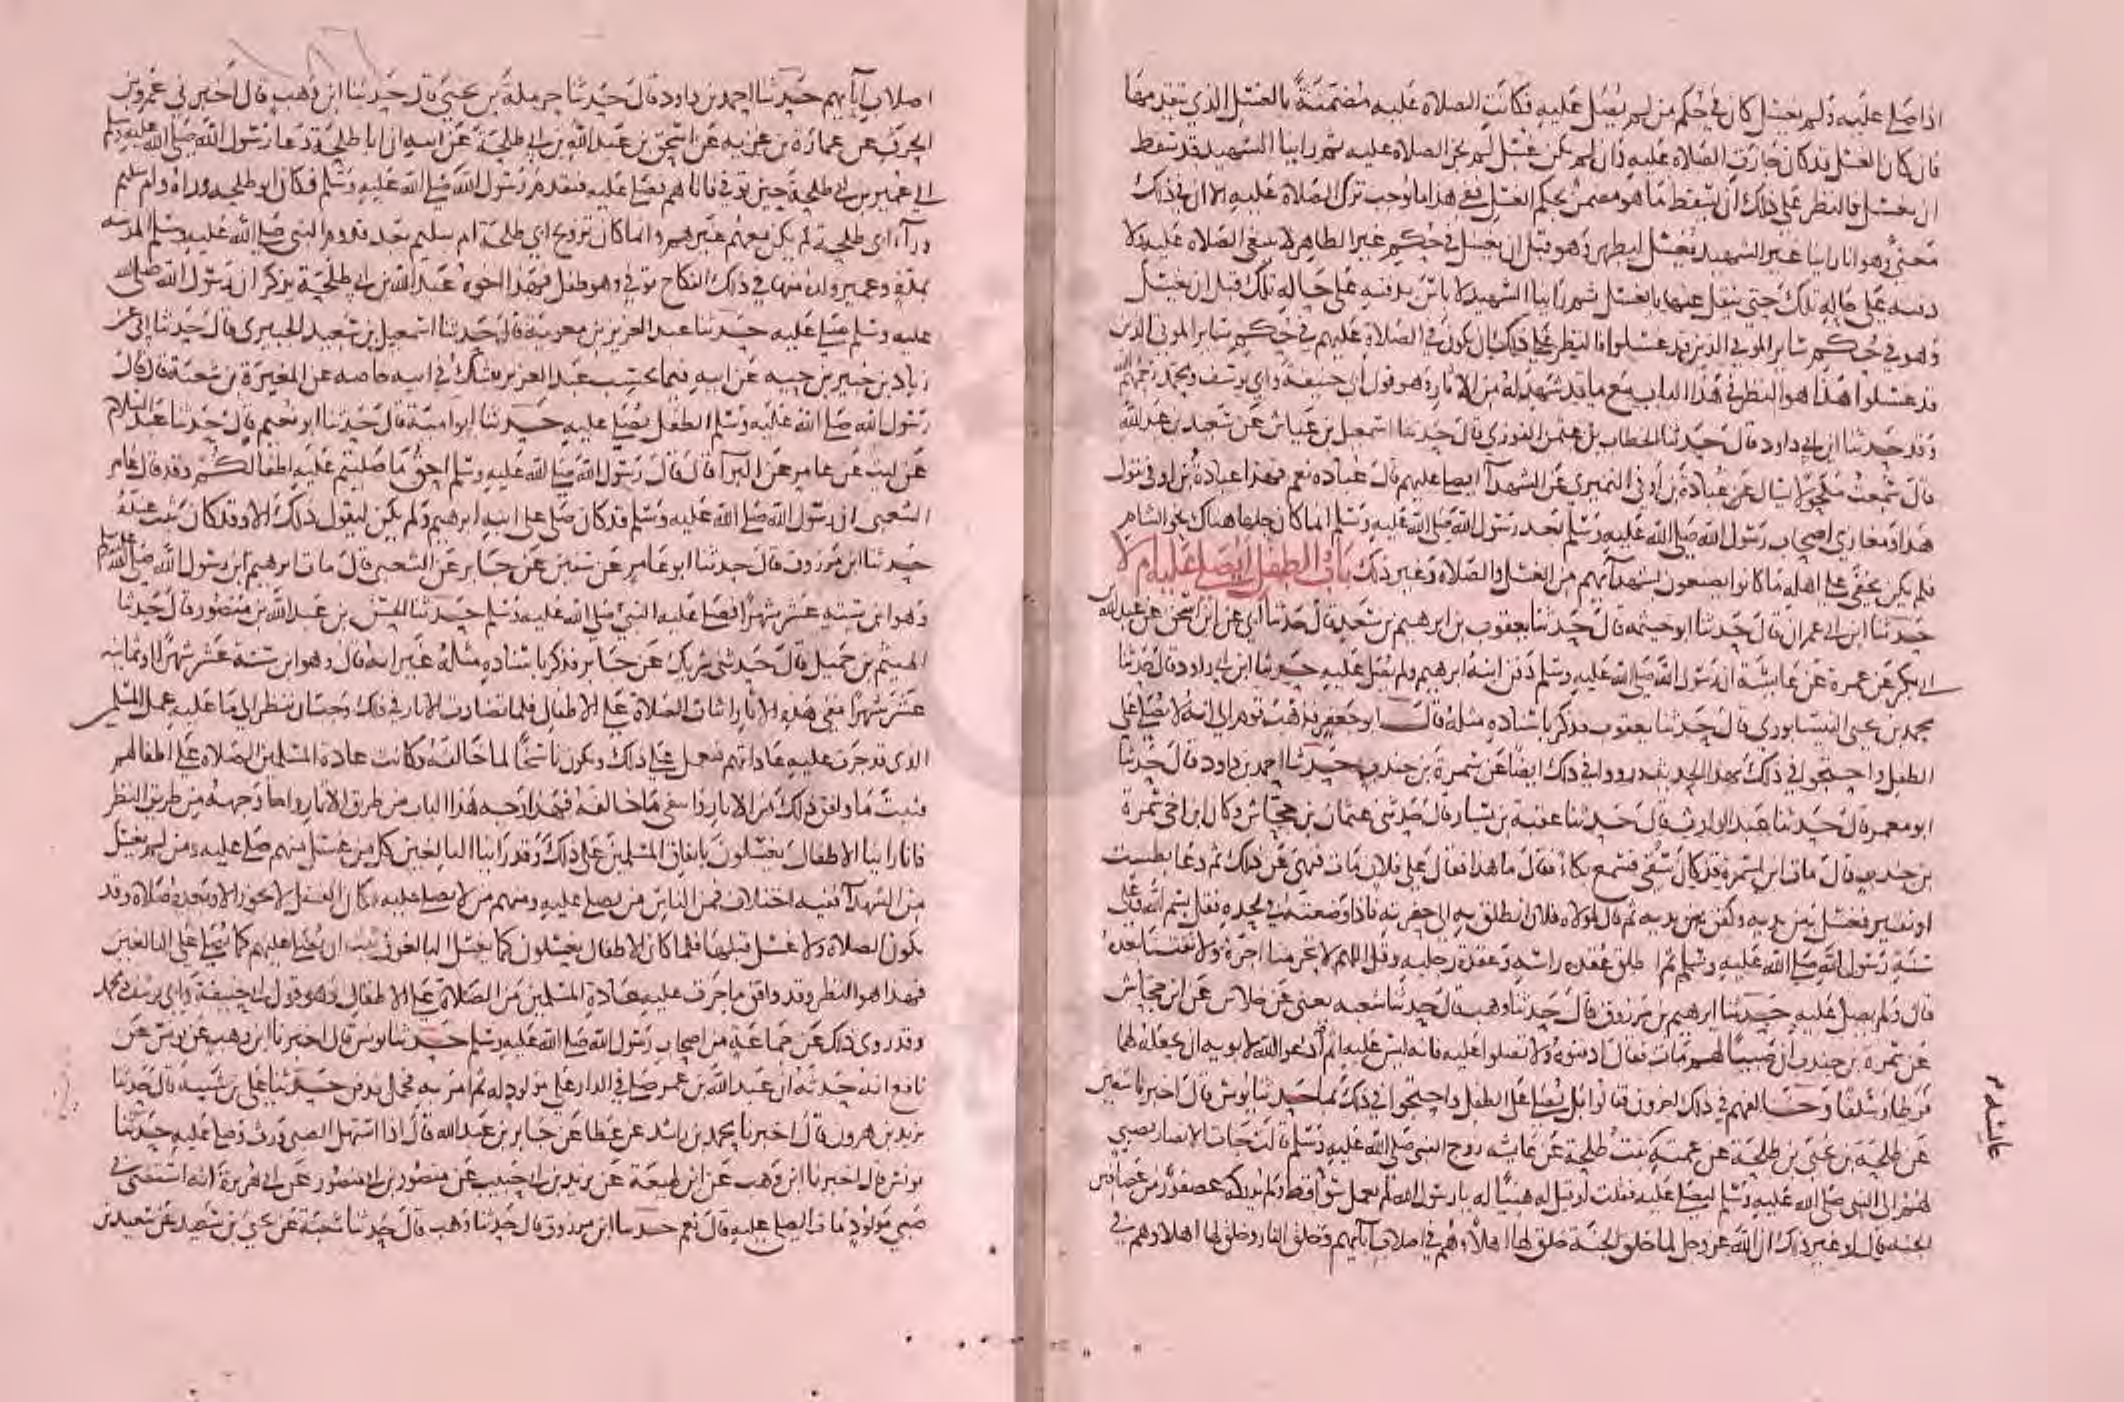 اذا صلى عليه ولم يغسل كان في حكم من لم يصل عليه فكانت الصلاة عليه مضمنة بالغسل الذي يتقدمها
فان كان الغسل قد كان جازت الصلاة عليه وان لم يكن غسل لم تجز الصلاة عليه ثم راينا الشهيد قد سقط
ان يغسل فالنظر على ذلك ان يسقط ما هو مضمن بحكم الغسل ففي هذا ما يوجب ترك الصلاة عليه الا ان في ذلك
معنى وهو انا راينا غير الشهيد يغسل ليطهر وهو قبل ان يغسل في حكم غير الطاهر لا ينبغي الصلاة عليه ولا
دفنه على حاله تلك حتى ينقل عنها بالغسل ثم راينا الشهيد لا باس بدفنه على حاله تلك قبل ان يغسل
وهو في حكم سائر الموتى الذين قد غسلوا فالنظر على ذلك ان يكون في الصلاة عليهم في حكم سائر الموتى الذين
قد غسلوا هذا هو النظر في هذا الباب مع ما قد شهد له من الاثار وهو قول ابي حنيفة وابي يوسف ومحمد رحمهم الله
وقد حدثنا ابن ابي داود قال حدثنا الخطاب بن عثمن الفوزي قال حدثنا اسمعيل بن عياش عن سعيد بن عبد الله
قال سمعت مكحولا يسال عن عبادة بن اوفى النميري عن الشهدآ ايصلى عليهم قال عباده نعم فهذا عبادة بن اوفى يقول
هذا ومغازي اصحاب رسول الله صلى الله عليه وسلم بعد رسول الله صلى الله عليه وسلم انما كان جلها هناك نحو الشام
فلم يكن يخفى على اهله ما كانوا يصنعون بشهدآيهم من الغسل والصلاة وغير ذلك باب الطفل ايصلى عليه ام لا
حدثنا ابن ابي عمران قال حدثنا ابو خيثمه قال حدثنا يعقوب بن ابرهيم بن سعد قال حدثنا ابي عن ابن اسحق عن عبد الله
بن ابي بكر عن عمرة عن عايشة ان رسول الله صلى الله عليه وسلم دفن ابنه ابرهيم ولم يصل عليه حدثنا ابن ابي داود قال حدثنا
محمد بن يحيى النيسابوري قال حدثنا يعقوب فذكر باسناده مثله قال ابو جعفر فذهب قوم الى انه لا يصلى على
الطفل واحتجوا في ذلك بهذا الحديث ورووا في ذلك ايضا عن سمرة بن جندب حدثنا احمد بن داود قال حدثنا
ابو معمر قال حدثنا عبد الوارث قال حدثنا عقبة بن سيار قال حدثني عثمان بن جحاش وكان ابن اخي سمرة
بن جندب قال مات ابن لسمرة قد كان سقي فسمع بكاء فقال ما هذا فقال على فلان مات فنهى عن ذلك ثم دعا بطست
او نقير فغسل بين يديه وكفن بين يديه ثم قال لمولاه فلان انطلق به الى حفرته فاذا وضعته في لحده فقل بسم الله وعلى
سنة رسول الله صلى الله عليه وسلم ثم اطلق عقد راسه وعقد رجليه وقل اللهم لا تحرمنا اجره ولا تفتنا بعده
قال ولم يصل عليه حدثنا ابرهيم بن مرزوق قال حدثنا وهب قال حدثنا شعبه يعني عن جلاس عن ابن جحاش
عن سمره بن جندب ان صبيا لهم مات فقال ادفنوه ولا تصلوا عليه فانه ليس عليه اثم ثم ادعوا الله لابويه ان يجعله لهما
فرطا وسلفا وخالفهم في ذلك اخرون فقالوا بل يصلى على الطفل واحتجوا في ذلك بما حدثنا يونس قال اخبرنا سفين
عن طلحة بن يحيى بن طلحة عن عمته عايشة بنت طلحة عن عايشه زوج النبي صلى الله عليه وسلم قالت جات الانصار بصبي
لهم الى النبي صلى الله عليه وسلم ليصلي عليه فقلت او قيل له هنيئا له يا رسول الله لم يعمل سوا قط ولم يدركه عصفور من عصافير
الجنة قال او غير ذلك ان الله عز وجل لما خلق الجنة خلق لها اهلا وهم في اصلاب آبايهم وخلق النار وخلق لها اهلا وهم في
اصلاب آبايهم حدثنا احمد بن داود قال حدثنا حرملة بن يحيى قال حدثنا ابن وهب قال اخبرني عمرو بن
الحرث عن عمارة بن غزيه عن اسحق بن عبد الله بن ابي طلحة عن ابيه ان ابا طلحة دعا رسول الله صلى الله عليه وسلم
الى عمير بن ابي طلحة حين توفي فاتاهم فصلى عليه فتقدم رسول الله صلى الله عليه وسلم فكان ابو طلحه وراه وام سليم
ورآء ابي طلحة لم يكن معهم غيرهم وانما كان تزويج ابي طلحة ام سليم بعد قدوم النبي صلى الله عليه وسلم المدينه
بمدة وعمير ولده منها في ذلك النكاح توفي وهو طفل فهذا اخوه عبد الله بن ابي طلحة يذكر ان رسول الله صلى الله
عليه وسلم صلى عليه حدثنا عبد العزيز بن معوية قال حدثنا اسمعيل بن سعيد الجبيري قال حدثنا ابي عن
زياد بن جبير بن حيه عن ابيه فيما يحسب عبد العزيز يشك في ابيه خاصه عن المغيرة بن شعبة قال قال
رسول الله صلى الله عليه وسلم الطفل يصلى عليه حدثنا ابو امية قال حدثنا ابو نعيم قال حدثنا عبد السلام
عن ليث عن عامر عن البرآ قال قال رسول الله صلى الله عليه وسلم احق ما صليتم عليه اطفالكم وقد قال عامر
الشعبي ان رسول الله صلى الله عليه وسلم قد كان صلى على ابنه ابرهيم ولم يكن ليقول ذلك الا وقد كان ثبت عنده
حدثنا ابن مرزوق قال حدثنا ابو عامر عن سفين عن جابر عن الشعبي قال مات ابرهيم ابن رسول الله صلى الله عليه وسلم
وهو ابن ستة عشر شهرا فصلى عليه النبي صلى الله عليه وسلم حدثنا الحسن بن عبد الله بن منصور قال حدثنا
الهيثم بن جميل قال حدثني شريك عن جابر فذكر باسناده مثله غير انه قال وهو ابن ستة عشر شهرا او ثمانيه
عشر شهرا ففي هذه الاثار اثبات الصلاة على الاطفال فلما تضادت الاثار في ذلك وجب ان ننظر الى ما عليه عمل المسلمين
الذي قد جرت عليه عاداتهم فيعمل على ذلك ويكون ناسخا لما خالفه وكانت عادة المسلمين الصلاة على اطفالهم
فثبت ما وافق ذلك من الاثار وانتفى ما خالفه فهذا وجه هذا الباب من طريق الاثار واما وجهه من طريق النظر
فانا راينا الاطفال يغسلون باتفاق المسلمين على ذلك وقد راينا البالغين كل من غسل منهم صلى عليه ومن لم يغسل
من الشهدآ ففيه اختلاف فمن الناس من يصلي عليه ومنهم من لا يصلي عليه فكان الغسل لا يجوز الا وبعده صلاة وقد
يكون الصلاة ولا غسل قبلها فلما كان الاطفال يغسلون كما يغسل البالغون ثبت ان يصلى عليهم كما يصلى على البالغين
فهذا هو النظر وقد وافق ما جرت عليه عادة المسلمين من الصلاة على الاطفال وهو قول ابي حنيفة وابي يوسف ومحمد
وقد روي ذلك عن جماعة من اصحاب رسول الله صلى الله عليه وسلم حدثنا يونس قال اخبرنا ابن وهب عن يونس عن
نافع انه حدثه ان عبد الله بن عمر صلى في الدار على مولود له ثم امر به فحمل فدفن حدثنا علي بن شيبة قال حدثنا
يزيد بن هرون قال اخبرنا محمد بن راشد عن عطا عن جابر بن عبد الله قال اذا استهل الصبي ورث وصلي عليه حدثنا
يونس قال اخبرنا ابن وهب عن ابن لهيعة عن يزيد بن ابي حبيب عن منصور بن ابي منصور عن ابي هريرة انه استفتى في
صبي مولود مات ايصلى عليه قال نعم حدثنا ابن مرزوق قال حدثنا وهب قال حدثنا شعبة عن يحيى بن سعيد عن سعيد بن